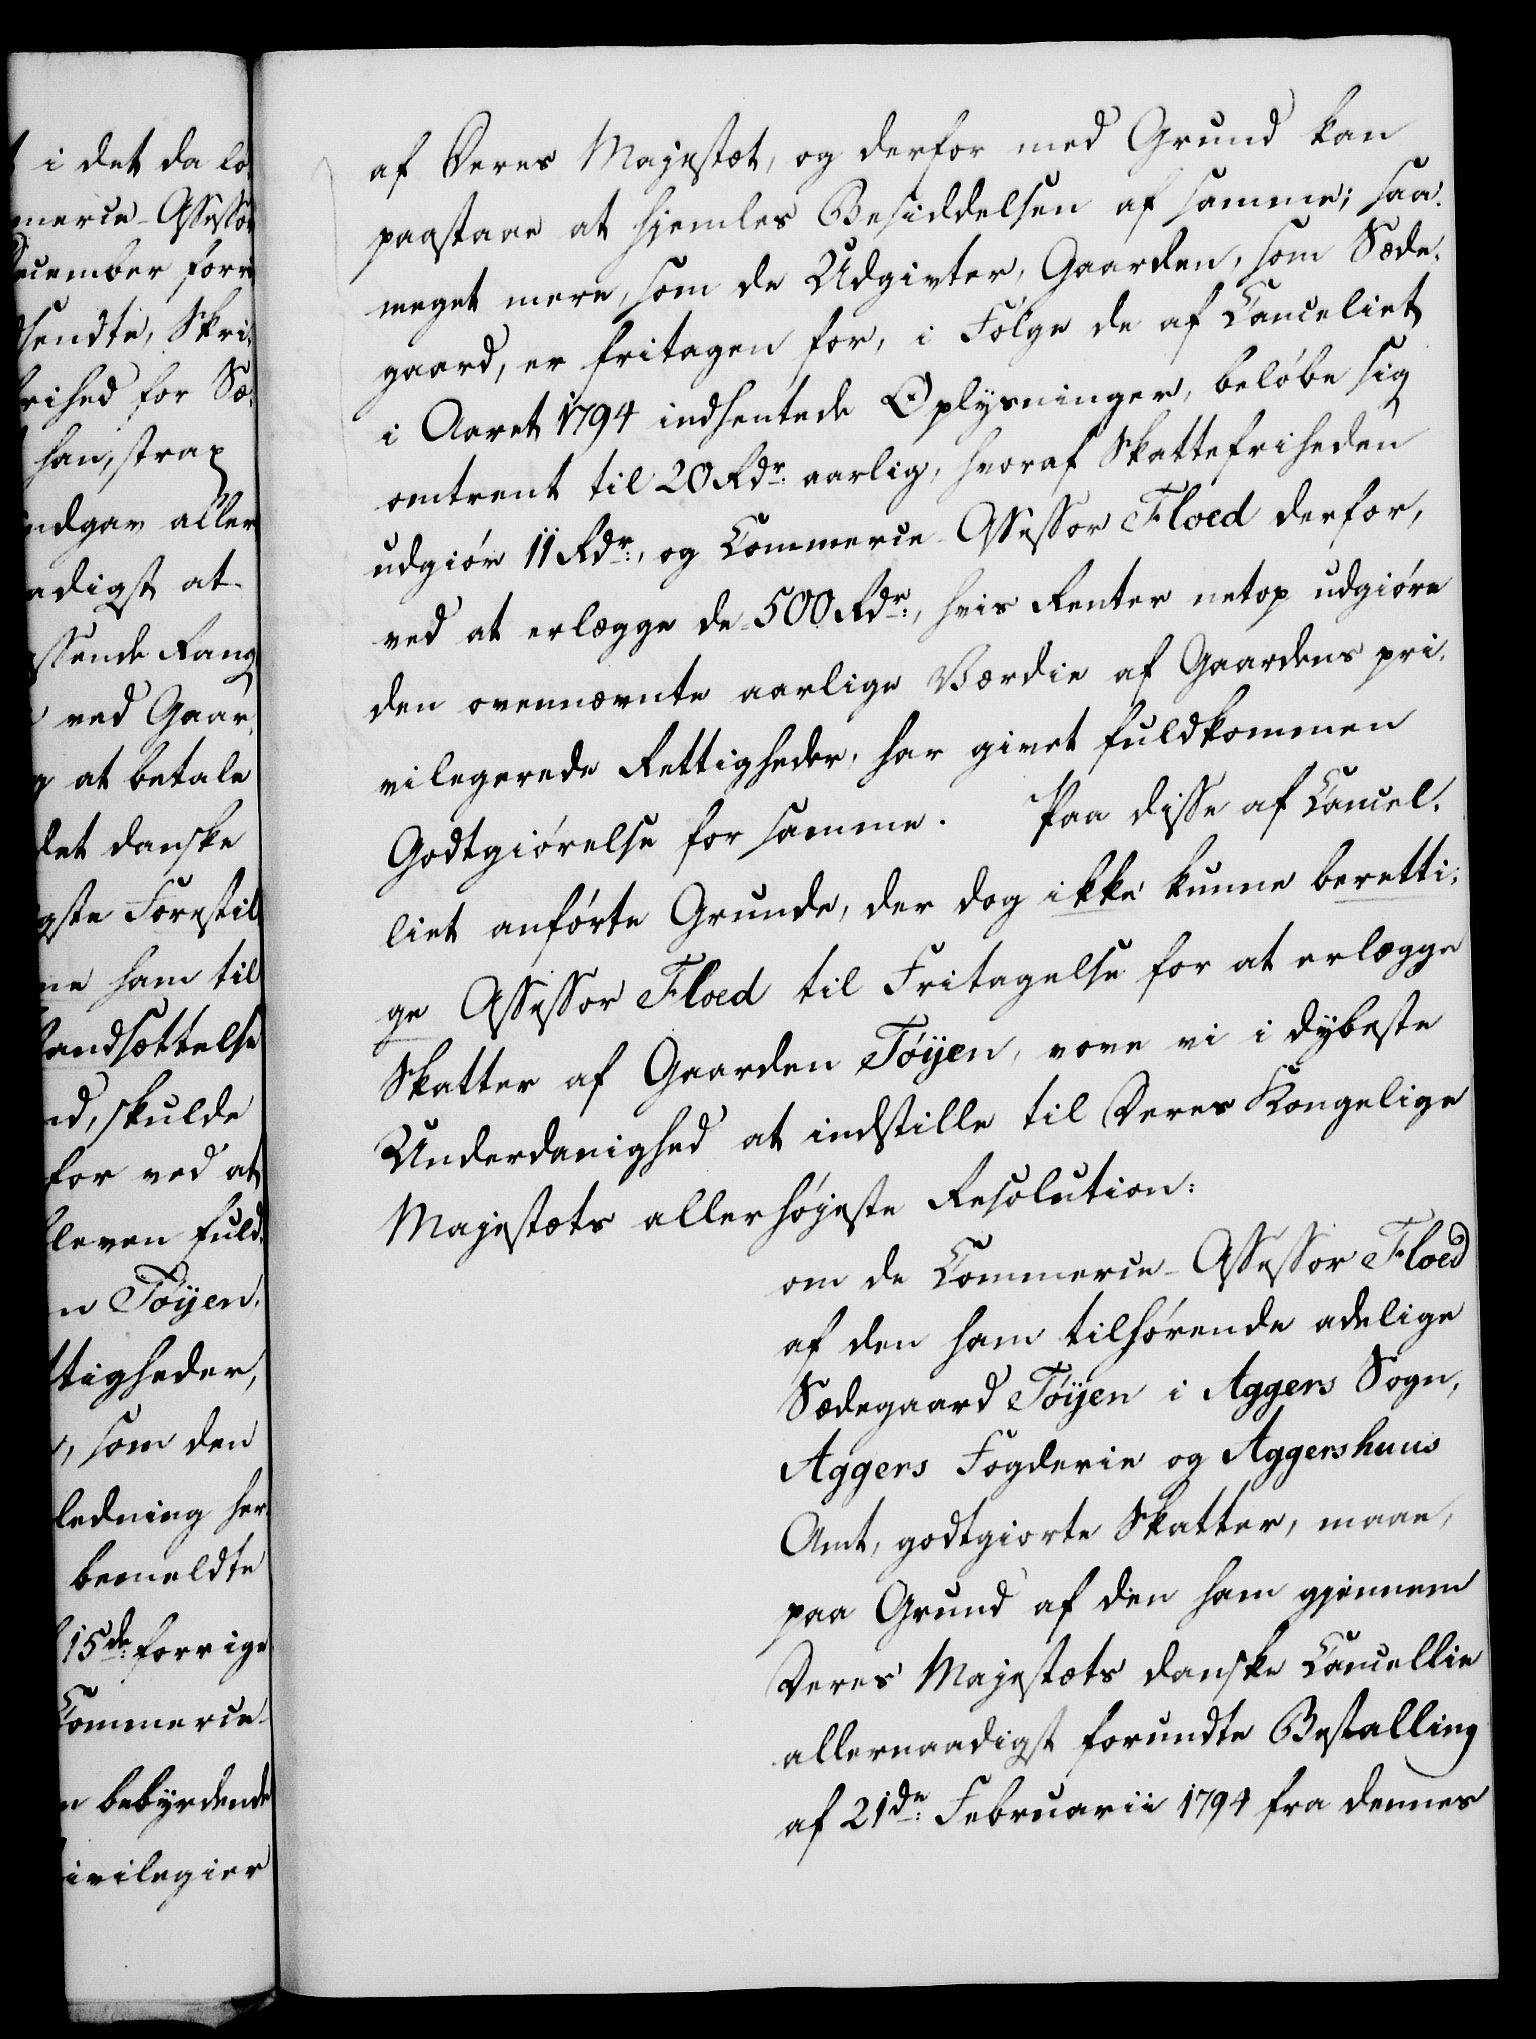 i det da lo
merce-Assessor
ecember forr
sendte, Skri-
rihed for Sæ-
han, strax
ndgav aller
adigst at
ssende Rang
ved Gaar-
g at betale
det danske
gste Forestil
ne ham til
andsættelse
nd, skulde
for ved at
leven fuld-
n Töyen,
ttigheder,
, som den
ledning her-
bemeldte
15de: forrige
Commerce-
n bebyrdende
ivilegier
af Deres Majestæt, og derfor med Grund kan
paastaae at hjemles Besiddelsen af samme; saa-
meget mere, som de Udgivter, Gaarden, som Sæde-
gaard, er fritagen for, i Følge de af Canceliet
i Aaret 1794 indhentede Oplysninger, beløbe sig
omtrent til 20 Rdr: aarlig, hvoraf Skattefriheden
udgiør 11 Rdr:, og Commerce-Assessor Floed derfor,
ved at erlægge de 500 Rdr:, hvis Renter netop udgiøre
den ovennævnte aarlige Værdie af Gaardens pri-
vilegerede Rettigheder, har givet fuldkommen
Godtgiørelse for samme. Paa disse af Cancel-
liet anførte Grunde, der dog ikke kunne beretti-
ge Assessor Floed til Fritagelse for at erlægge
Skatter af Gaarden Töyen, vove vi i dybeste
Underdanighed at indstille til Deres Kongelige
Majestæts allerhøjeste Resolution:
om de Commerce-Assessor Floed
af den ham tilhørende adelige
Sædegaard Töyen i Aggers Sogn,
Aggers Fogderie og Aggershuus
Amt, godtgiorte Skatter, maae,
paa Grund af den ham gjennem
Deres Majestæts danske Cancellie
allernaadigst forundte Bestalling
af 21de: Februarii 1794 fra dennes